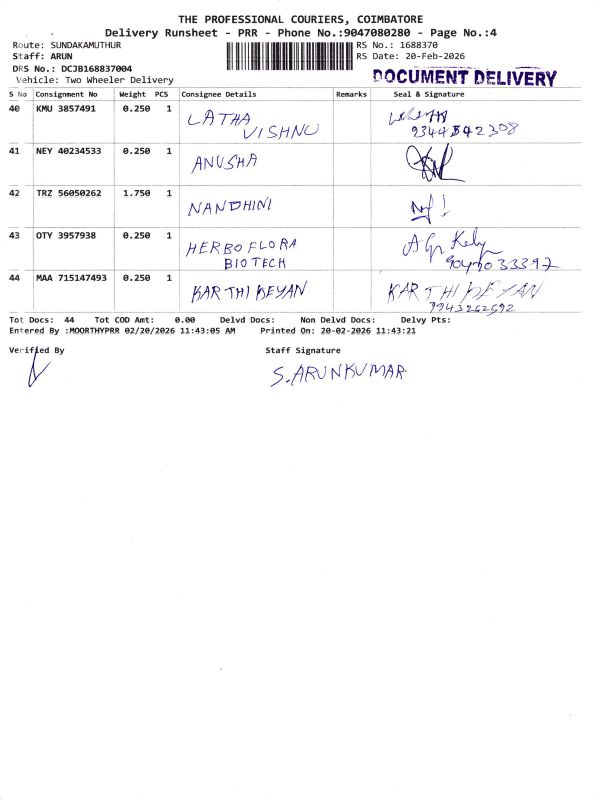 THE PROFESSIONAL COURIERS, COIMBATORE
Delivery Runsheet - PRR - Phone No.:9047080280 - Page No.:4
Route: SUNDAKAMUTHUR RS No.: 1688370
Staff: ARUN RS Date: 20-Feb-2026
DRS No.: DCJB168837004
Vehicle: Two Wheeler Delivery DOCUMENT DELIVERY
S No Consignment No Weight PCS Consignee Details Remarks Seal & Signature
40 KMU 3857491 0.250 1 LATHA VISHNU
9344542308
41 NEY 40234533 0.250 1 ANUSHA
42 TRZ 56050262 1.750 1 NANDHINI
43 OTY 3957938 0.250 1 HERBO FLORA
BIOTECH
44 MAA 715147493 0.250 1 KARTHIKEYAN KARTHIKEYAN
Tot Docs: 44 Tot COD Amt: 0.00 Delvd Docs: Non Delvd Docs: Delvy Pts:
Entered By :MOORTHYPRR 02/20/2026 11:43:05 AM Printed On: 20-02-2026 11:43:21
Verified By Staff Signature
S.ARUNKUMAR